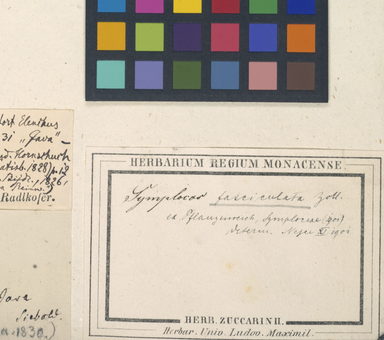 Hort Elenthus
31 "Java" –
Hornschuch
1828) p. 12
1826,
Radlkofer.
Java
Siebold.
1830.)
HERBARIUM REGIUM MONACENSE.
Symplocos fasciculata Zoll.
ex Pflanzenreich, Symplocac. (1901)
determ. Neger XI 1901
HERB. ZUCCARINII.
Herbar. Univ. Ludov. Maximil.